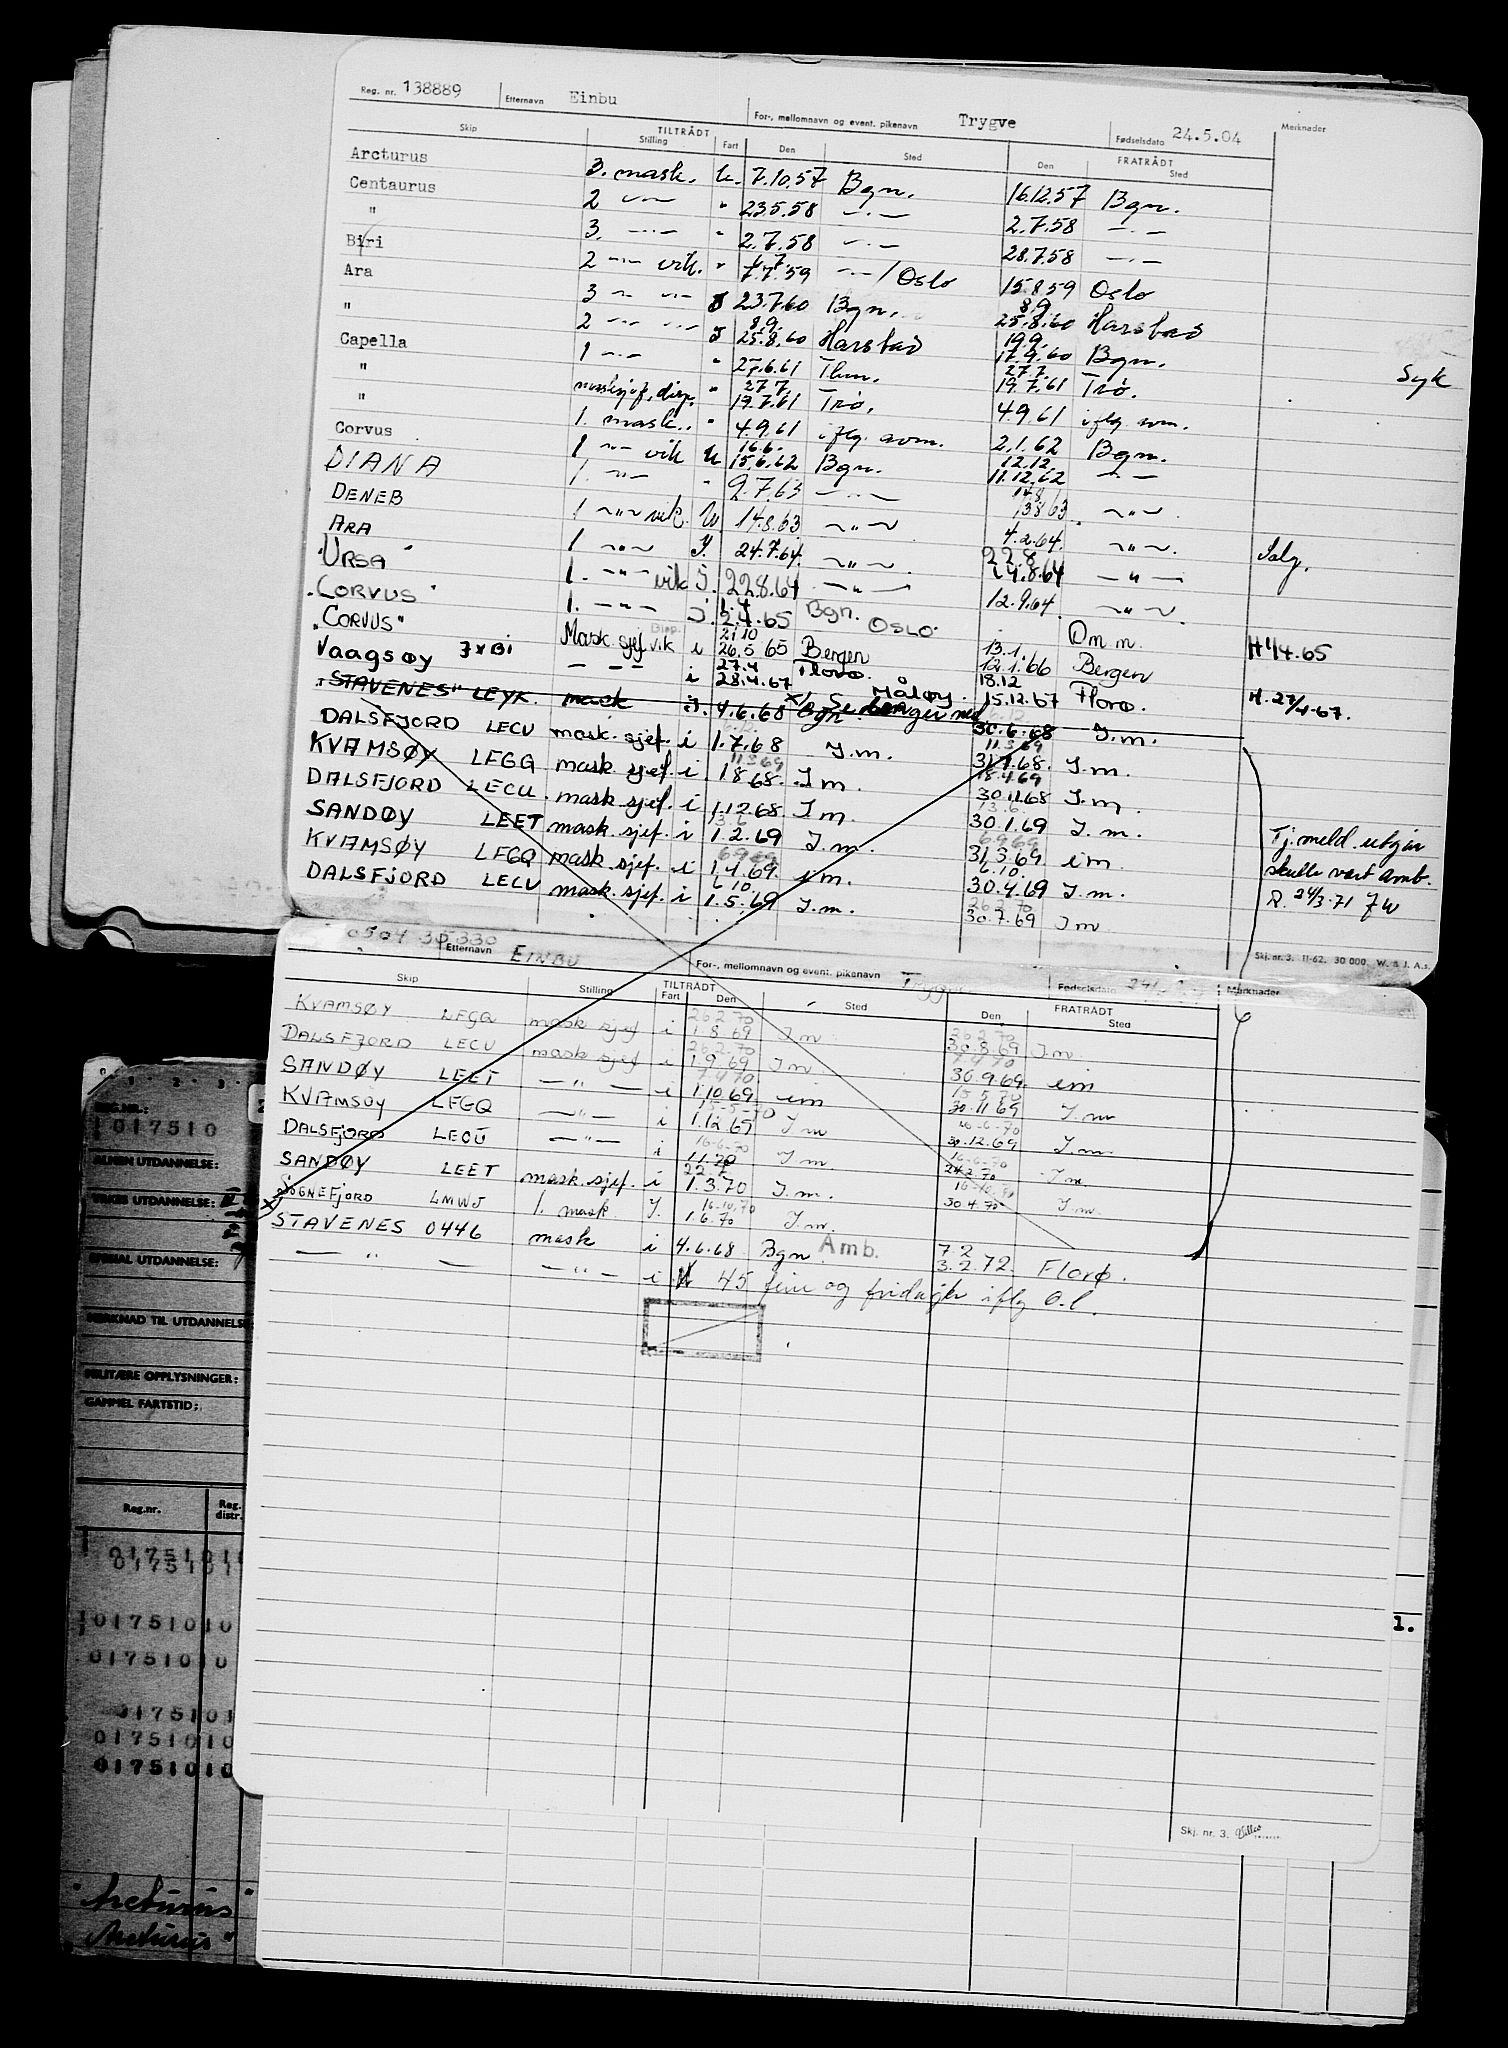 Reg. nr. 138889 Etternavn Einbu For-, mellomnavn og event. pikenavn Trygve Fødselsdato 24.5.04 Merknader
Skip TILTRÅDT Stilling Fart Den Sted Den FRATRÅDT Sted
Arcturus 3. mask. U. 7.10.57 Bgn. 16.12.57 Bgn.
Centaurus 2 —"— " 23.5.58 —"— 2.7.58 —"—
" 3. —"— " 2.7.58 —"— 28.7.58 —"—
Biri 2 —"— vik. " 7.7.59 —"— / Oslo 15.8.59 Oslo
Ara 3 —"— —"— 23.7.60 Bgn. 8.9. 25.8.60 Harstad
" 2 —"— —"— I 8.9. 25.8.60 Harstad 19.9. 17.9.60 Bgn.
Capella 1 —"— " 27.6.61 Thm. 27.7. 19.7.61 Trø. Syk
" masksjef, disp. " 27.7. 19.7.61 Trø. 4.9.61 iflg. avm.
" 1. mask. " 4.9.61 iflg. avm. 2.1.62 Bgn.
Corvus 1 —"— vik U 16.6. 15.6.62 Bgn. 12.12. 11.12.62 —"—
DIANA 1. —"— " 2.7.63 —"— 14.8 13.8.63 —"—
DENEB 1 —"— vik. U. 14.8.63 —"— 4.2.64. —"—. Salg.
ARA 1 —"— I. 24.7.64. —"—. 22.8. 21.8.64 —"—
"URSA" 1. —"— vik I. 22.8.64 —"— 12.9.64. —"—.
"CORVUS" 1. —"— I. 1.4 2.4.65 Bgn. OSLO. Om m. H 1/4.65
"CORVUS" Mask sjef vik Disp. i 21.10 26.5 65 Bergen 13.1. 12.1.66 Bergen
Vaagsøy JXBI — — — i 27.4 28.4.67 Florø. Måløy. 18.12 15.12.67 Florø. H. 27/4-67.
"STAVENES" LEYK. mask I. 4.6.68 Bgn. 30.6.68 I.m.
DALSFJORD LECU mask. sjef. i 1.7.68 I.m. 11.3.69 31.7.68. I.m.
KVAMSØY LFGQ mask. sjef. i 11.3.69 1.8.68. I.m. 18.4.69 30.11.68 I.m.
DALSFJORD LECU. mask. sjef. i 1.12.68 I.m. 13.6 30.1.69 I.m.
SANDØY LEET mask. sjef. i 13.6 1.2.69 I.m. 6.9.69 31.3.69 i m. Tj. meld. utgår
KVAMSØY LFGQ mask. sjef. i 6.9.69 1.4.69. i m. 6.10. 30.4.69 I.m. skulle vært amb.
DALSFJORD LECU mask. sjef. i 6.10. 1.5.69 I.m. 26.2.70 30.7.69 I m R. 24/3-71
Skj. nr. 3. 11-62. 30 000. W. & J. A.s.
0504 35330 Etternavn EINBU For-, mellomnavn og event. pikenavn Trygve Fødselsdato Merknader
Skip Stilling TILTRÅDT Fart Den Sted Den FRATRÅDT Sted
KVAMSØY LFGQ mask sjef i 26.2.70 1.8.69 I m 26.2.70 30.8.69 I m
DALSFJORD LECU mask sjef i 26.2.70 1.9.69 I m 7.4.70 30.9.69. i m
SANDØY LEET —"— i 7.4.70 1.10.69. i m 15.5.70 30.11.69 I.m
KVAMSØY LFGQ —"— i 15-5-70 1.12.69 I m 16-6-70 30.12.69 I.m
DALSFJORD LECU —"— i 16-6-70 1.1.70 I m 16-6-70 I m
SANDØY LEET mask. sjef. i 22.7. 1.3.70 I.m. 30.4.70 I.m.
SOGNEFJORD LMWJ 1. mask I. 16-10.70 1.6.70 I.m.
X STAVENES 0446 mask i 4.6.68 Bgn. Amb. 7.2 3.2.72. Florø.
— " — — " — i 45 ferie og fridager iflg O.l.
Skj. nr. 3.
REG.NR.:
1017510
ALMEN UTDANNELSE:
YRKES UTDANNELSE:
SPESIAL UTDANNELSE:
MERKNAD TIL UTDANNELSE
MILITÆRE OPPLYSNINGER:
GAMMEL FARTSTID:
Reg.nr. Reg. distr.
01751010
01751010
01751010
01751010
1.
"Arcturus"
"Arcturus"